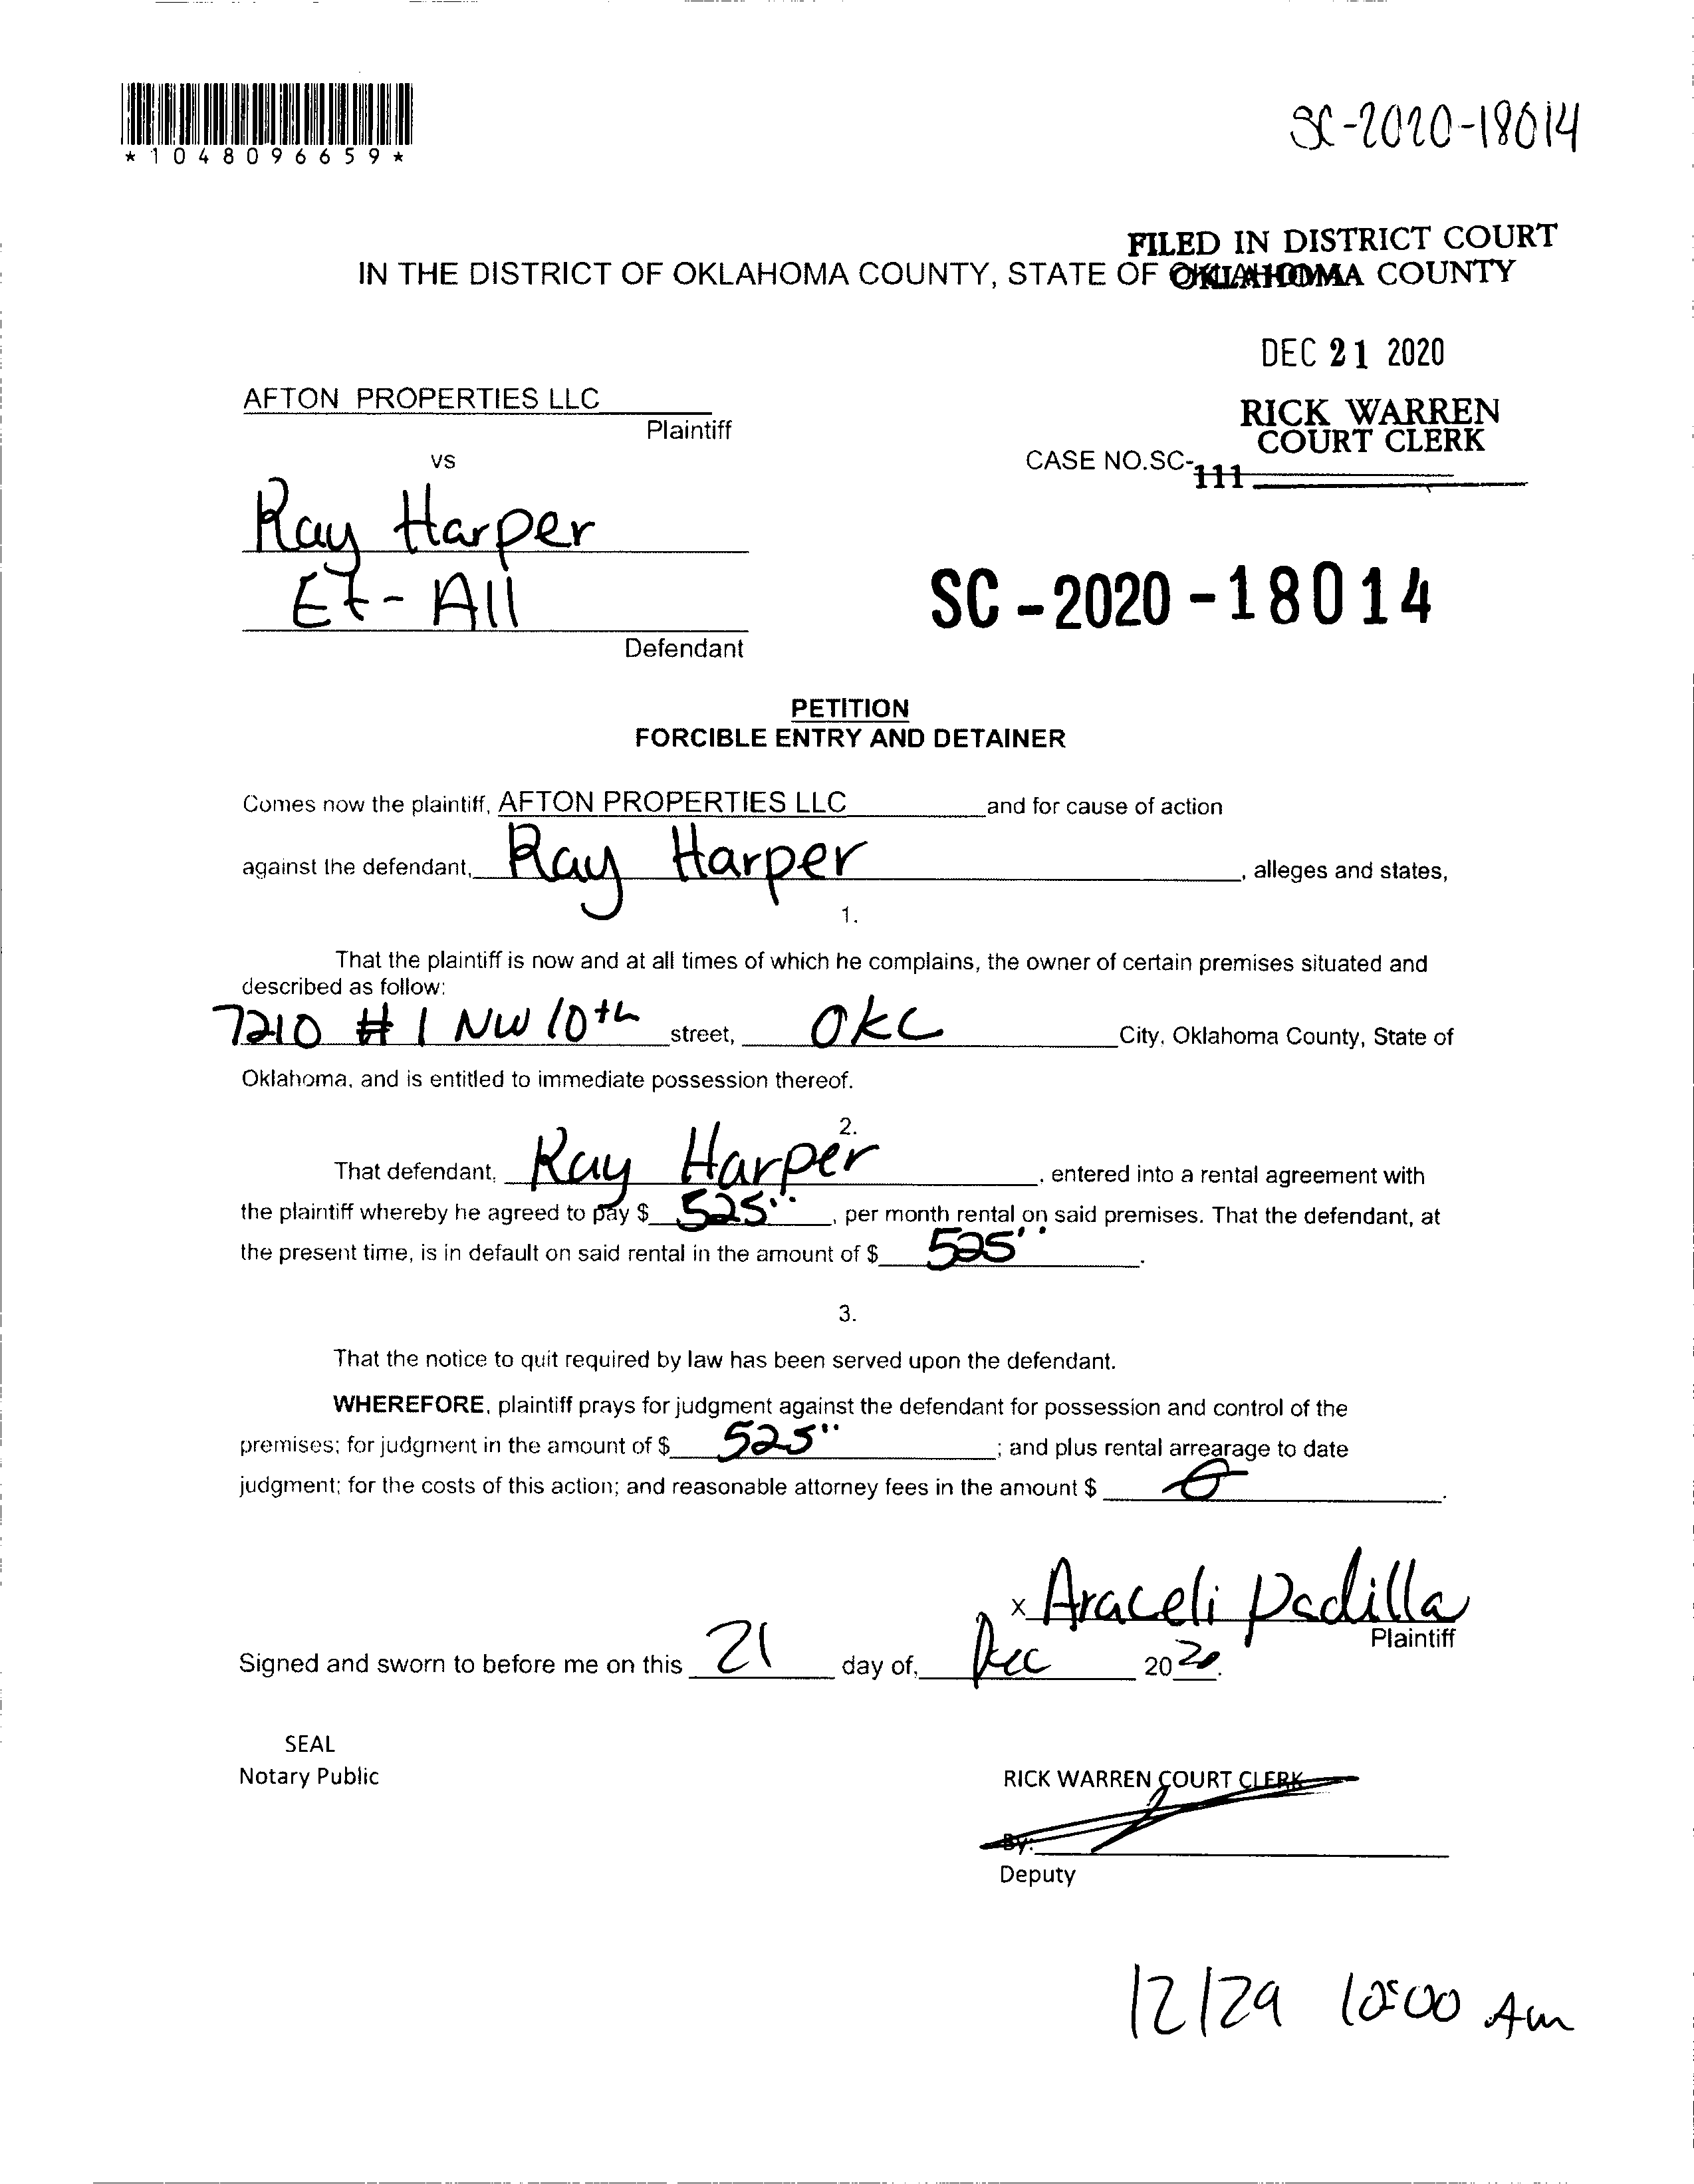 *1048096659*
SC-2020-18014
FILED IN DISTRICT COURT
OKLAHOMA COUNTY
IN THE DISTRICT OF OKLAHOMA COUNTY, STATE OF OKLAHOMA
DEC 21 2020
AFTON PROPERTIES LLC
Plaintiff
RICK WARREN
COURT CLERK
vs
CASE NO.SC-
111
Ray Harper
Et-All
SC-2020-18014
Defendant
PETITION
FORCIBLE ENTRY AND DETAINER
Comes now the plaintiff, AFTON PROPERTIES LLC and for cause of action
against the defendant, Ray Harper, alleges and states,
1.
That the plaintiff is now and at all times of which he complains, the owner of certain premises situated and
described as follow:
7210 # 1 NW 10th street, OKC City, Oklahoma County, State of
Oklahoma, and is entitled to immediate possession thereof.
2.
That defendant, Ray Harper, entered into a rental agreement with
the plaintiff whereby he agreed to pay $ 525", per month rental on said premises. That the defendant, at
the present time, is in default on said rental in the amount of $ 525".
3.
That the notice to quit required by law has been served upon the defendant.
WHEREFORE, plaintiff prays for judgment against the defendant for possession and control of the
premises; for judgment in the amount of $ 525" ; and plus rental arrearage to date
judgment; for the costs of this action; and reasonable attorney fees in the amount $ 0.
x Araceli Padilla
Plaintiff
Signed and sworn to before me on this 21 day of, Dec 2020.
SEAL
Notary Public
RICK WARREN COURT CLERK
By:
Deputy
12/29 10:00 Am